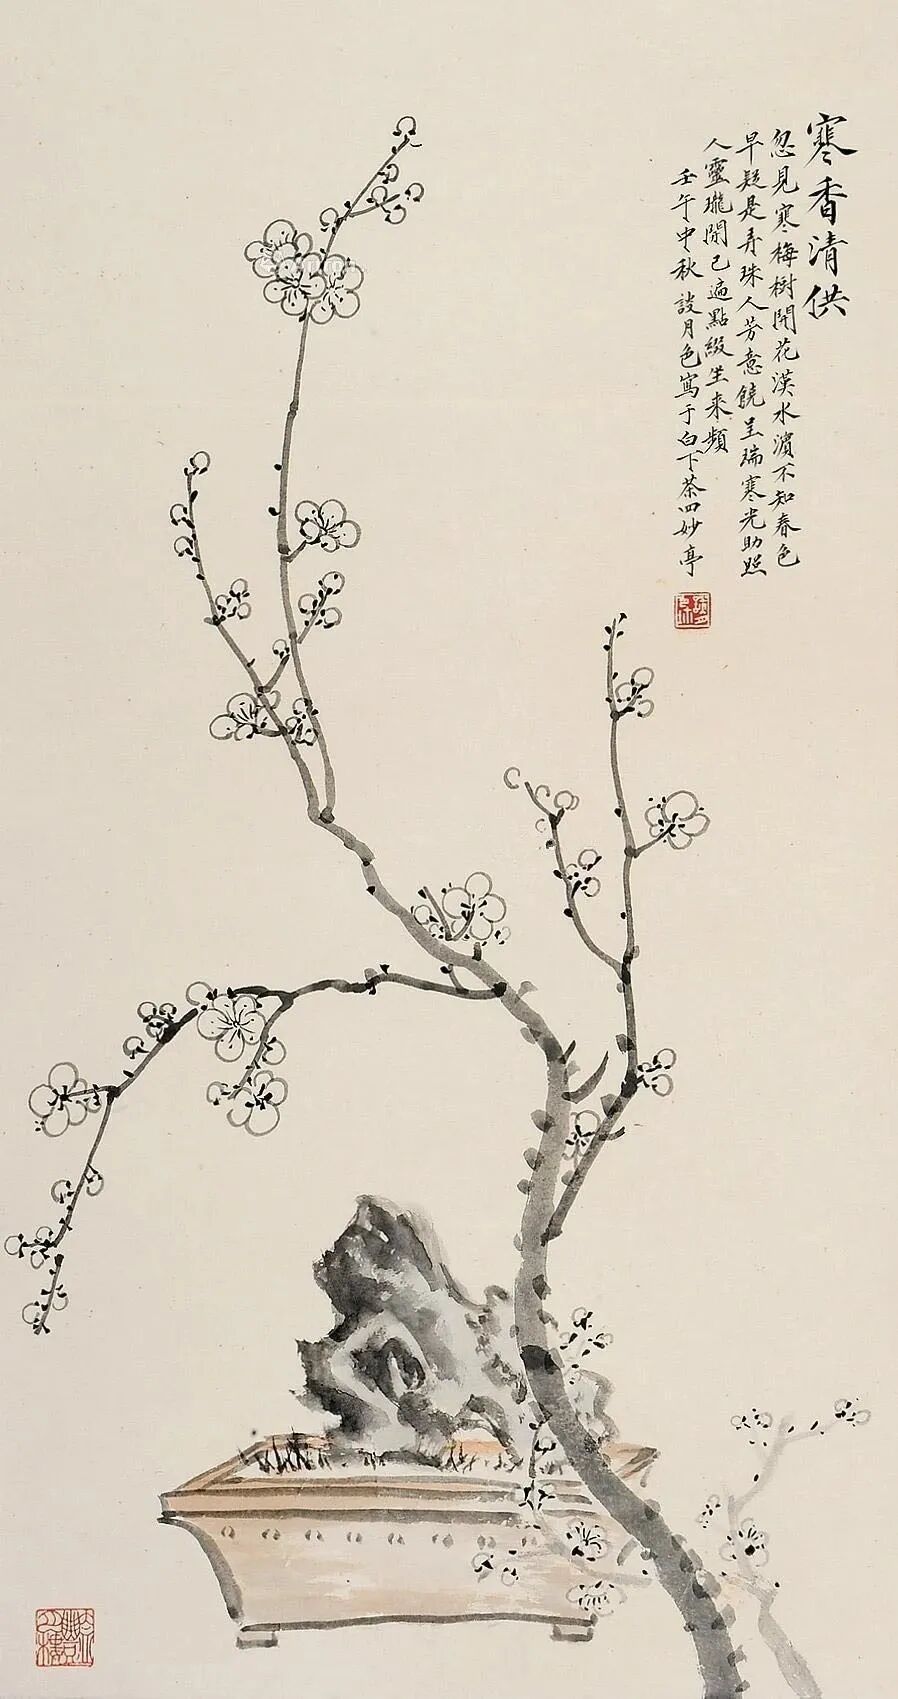 寒香清供
忽見寒梅樹開花漢水濱不知春色
早疑是弄珠人芳意饒呈瑞寒光助照
人靈瓏開已遍點綴坐来頻
壬午中秋談月色寫于白下茶四妙亭